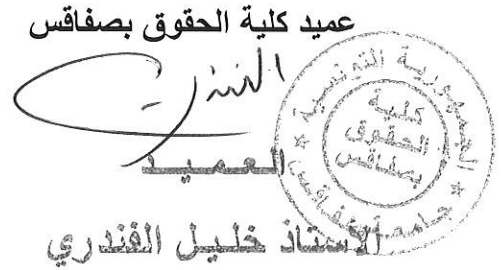 عميد كلية الحقوق بصفاقس
الجمهورية التونسية
كلية
الحقوق
بصفاقس
جامعة صفاقس
العميد
الاستاذ خليل الفندري